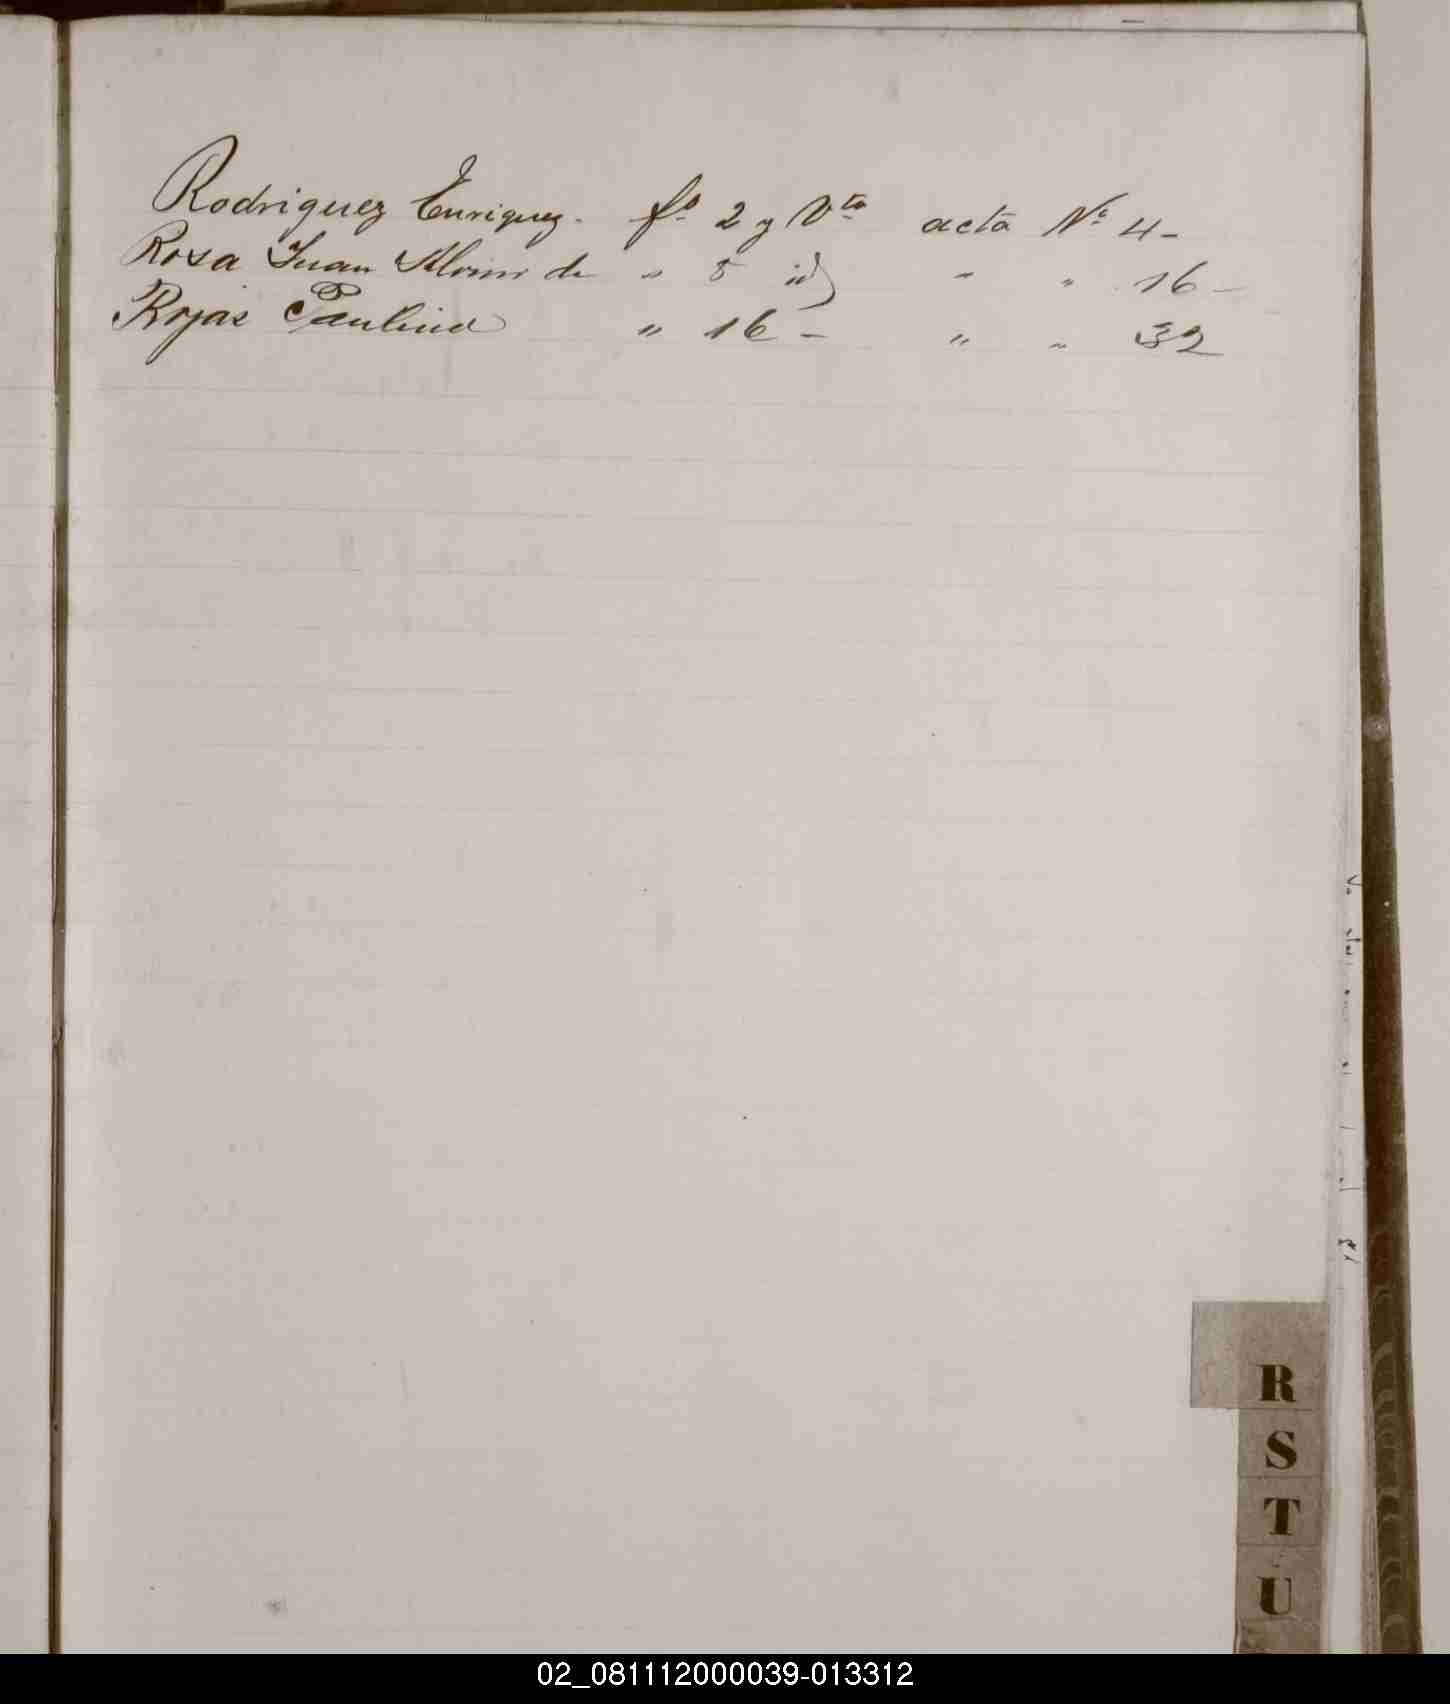 Rodriguez Enriquez. fº 2 y Vta acta Nº 4-
Rosa Juan de " 8 id " " 16-
Rojas Paulino " 16 - " " 32
R
S
T
U
02_081112000039-013312